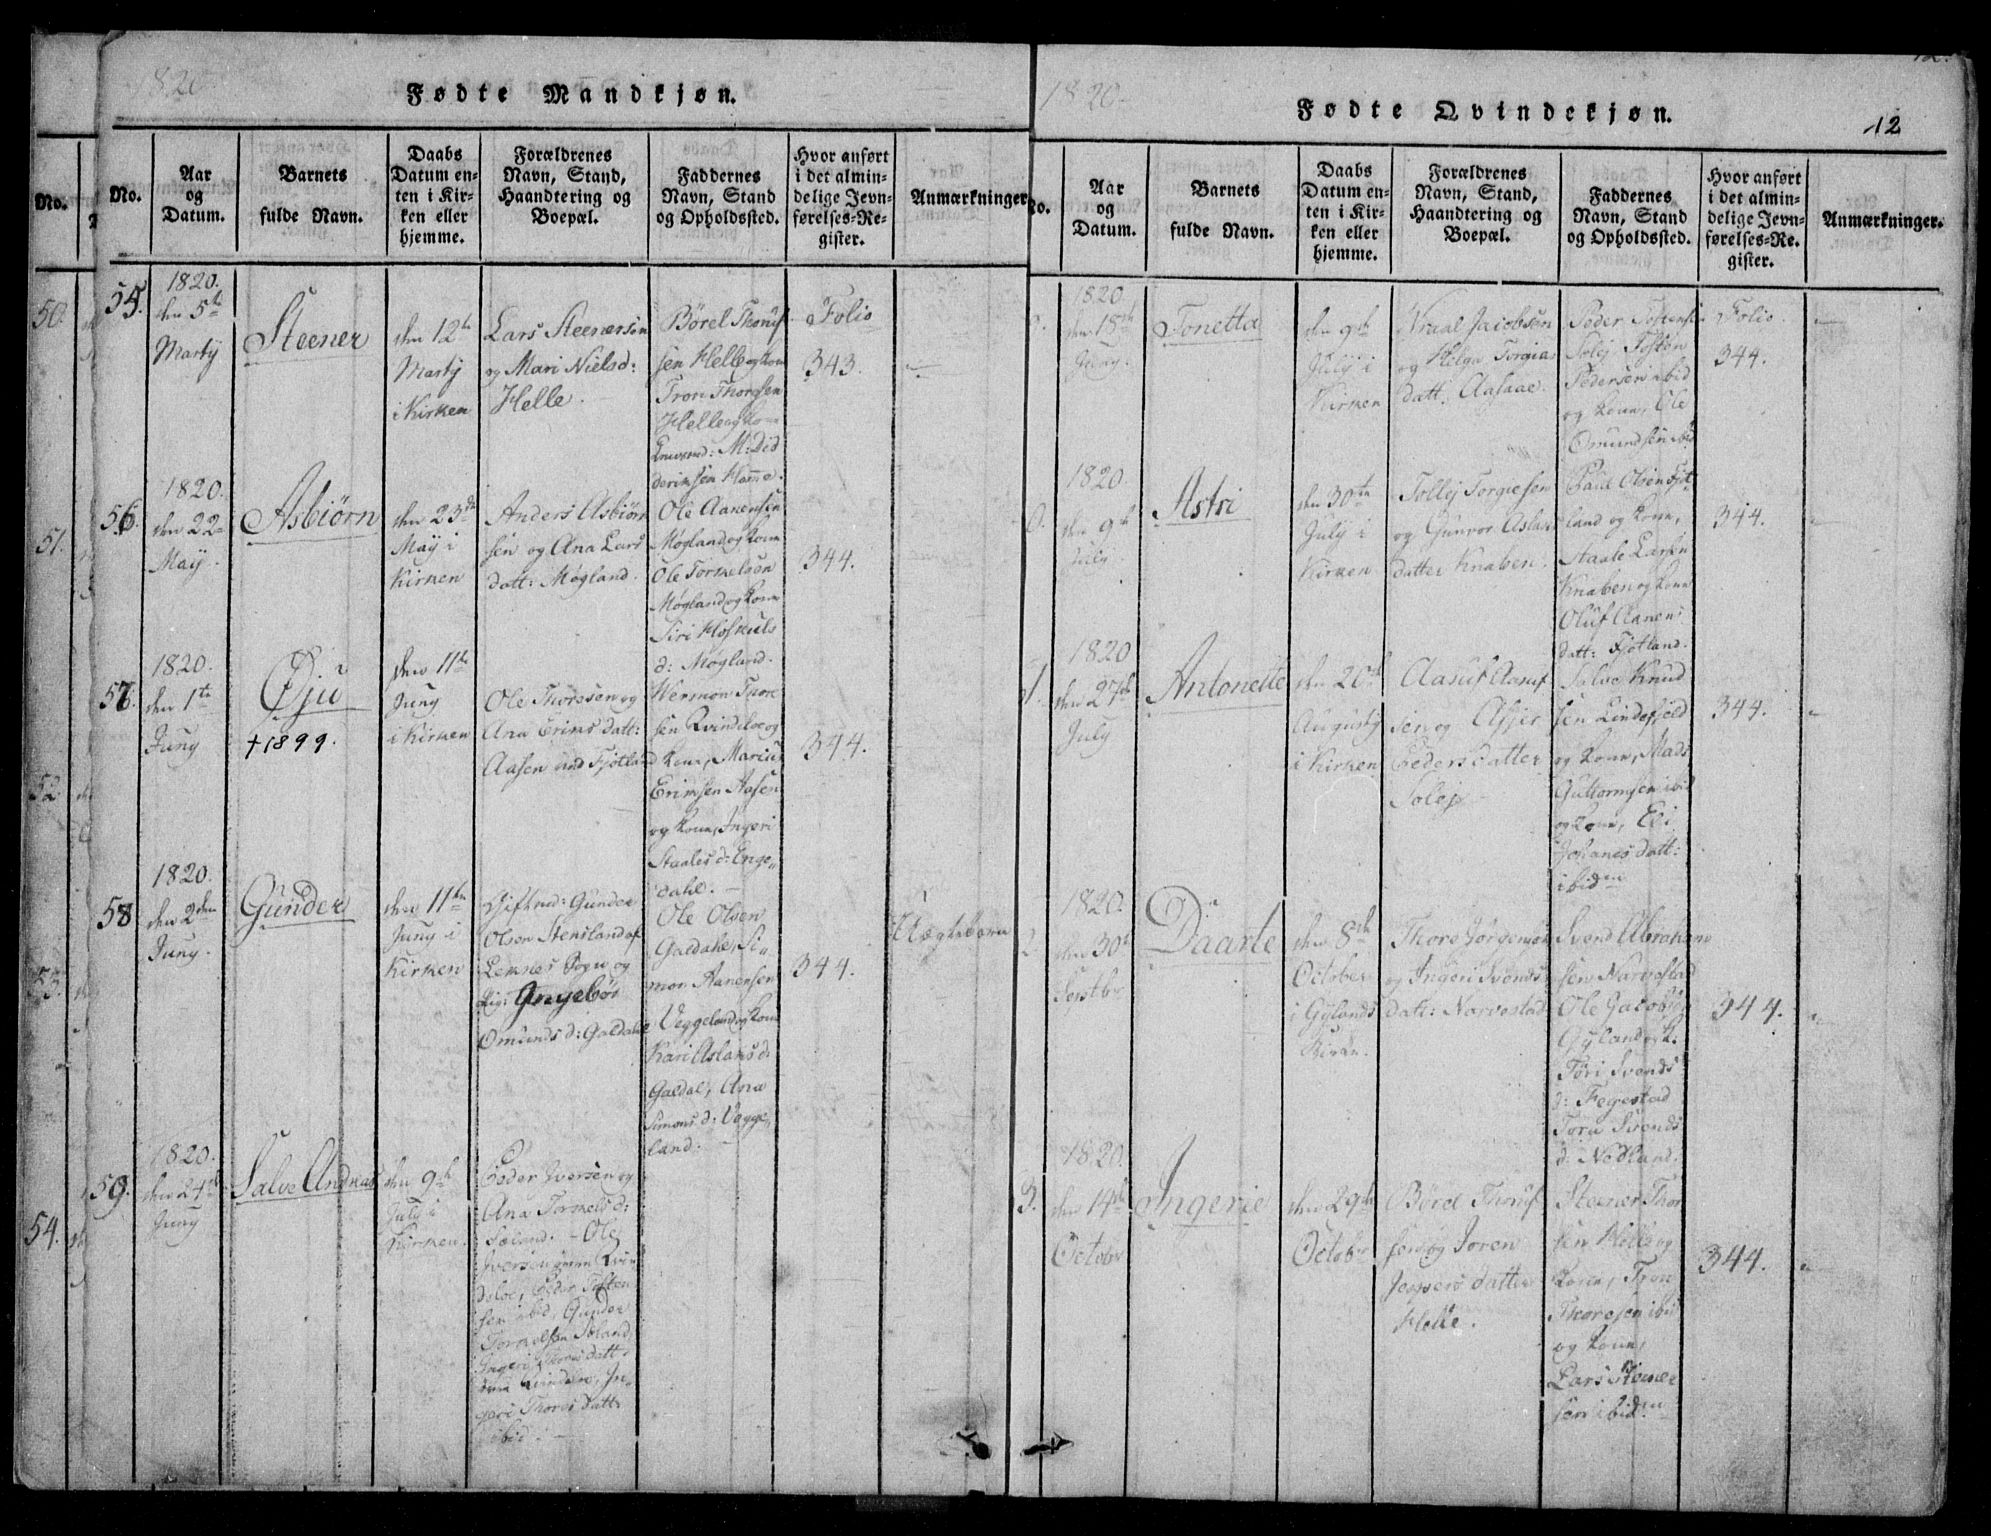 1820
Fødte Mandkjøn.
No.
No.
Aar
og
Datum.
Barnets
fulde Navn.
Daabs
Datum en-
ten i Kir-
ken eller
hjemme.
Forældrenes
Navn, Stand,
Haandtering og
Boepæl.
Faddernes
Navn, Stand
og Opholdssted.
Hvor anført
i det almin-
delige Jevn-
førelses-Re-
gister.
Anmærkninger
50.
51.
52
53.
54.
55.
1820.
den 5te
Martij
Steener
den 12te
Martij
i Kirken
Lars Steenersøn
og Mari Nielsd:
Helle.
Børel Thoruf
sen Helle og kone
Tron Thorsen
Helle og ko-
M: Did
derichsen Hamme.
Folio
343.
56.
1820.
den 22
Maÿ.
Asbiørn
den 23de
Maÿ i
Kirken
Anders Asbiørn
sen og Ana Lars
datt: Møgland.
Ole Aanensen
Møgland og kone
Ole Torkelsen
Møgland og kone
Siri Høskuls
d: Møgland.
344.
57.
1820.
den 1te
Juny
Øjü
+1899.
den 11te
Juny
i Kirken
Ole Thoressen og
Ana Erics datt:
Aasen ved Fjotland
Wermon Thor
sen Qvindsloe og
kone, Marcus
Ericksen Aasen
og kone, Ingeri
Staales d: Enge„
dahl.
344.
58
1820.
den 2den
Juny.
Gunder
den 11te
Juny i
Kirken
Gift md: Gunder
Olsen Stensland af
Leknes Sogn og
Pig: Gnyebør
Omunds d: Galdahl
Ole Olsen
Galdahl, Si„
mon Aanensen
Veggeland og kone
Kari Aslaks d:
Galdal, Ana
Simons d: Vegge„
land:
344.
Uægtebarn
59.
1820.
den 24de
Juny
Salve Andreas
den 9de
July i
Kirken.
Peder Iversen og
Ana Torkels d:
Ole
Iversen
dsloe, Peder Tosten
sen ibid, Gunder
Torkelsen
Ingeri Thores datt.
In„
geri Thores datt:
ibid.
1820.
Fødte Qvindekjøn.
12
12.
No.
Aar
og
Datum.
Barnets
fulde Navn.
Daabs
Datum en-
ten i Kir-
ken eller
hjemme.
Forældrenes
Navn, Stand,
Haandtering og
Boepæl.
Faddernes
Navn, Stand
og Opholdssted.
Hvor anført
i det almin-
delige Jevn-
førelses-Re-
gister.
Anmærkninger.
1820
den 15de
Juny.
Tonetta
den 9de
July i
Kirken
Wraal Jacobsen
og Helga Torgius
datt. Aasaae.
Peder Tostensen
Solej, Tosten
Pedersen ibid
og kone, Ole
Omundsen ibid
Folio.
344.
0.
1820.
den 9de
July
Astri
den 30te
July i
Kirken
Tollej Torgiesen
og Gunvor Aslaks
datter Knaben.
Paul Olsen Fjot„
land og kone,
Staale Larsen
Knaben og kone
Oluf Aanens
datt: Fjotland.
344.
1.
1820
den 27de
July
Antonette
den 20de
Augusty
i Kirken
Aasuf Aasuf
sen og Asser
Peders datter
Solej
Salve Knud
sen Lindefjeld
og kone, Mads
Guttormsen ibid
og kone, Eli
Johanes datt:
ibidem
344.
2
1820.
den 30te
Septbr
Daarte
den 8de
October
i Gylands
Kirke.
Thore Jørgensen
og Ingeri Svends
datt: Narvestad
Svend Abraham
sen Narvestad
Ole Jacobsen
Gyland og k.
Tøri Svends
d: Fegestad
Tora Svends
d. Nedland.
344.
3.
1820.
den 14de
Octobr
Ingerie
den 29de
Octobr
Børel Thoruf
sen og Joren
Jespers datter
Helle.
Steener Thor
sen Helle og
kone, Tron
Thoresen ibid
og kone,
Lars Steener
sen ibidem
344.